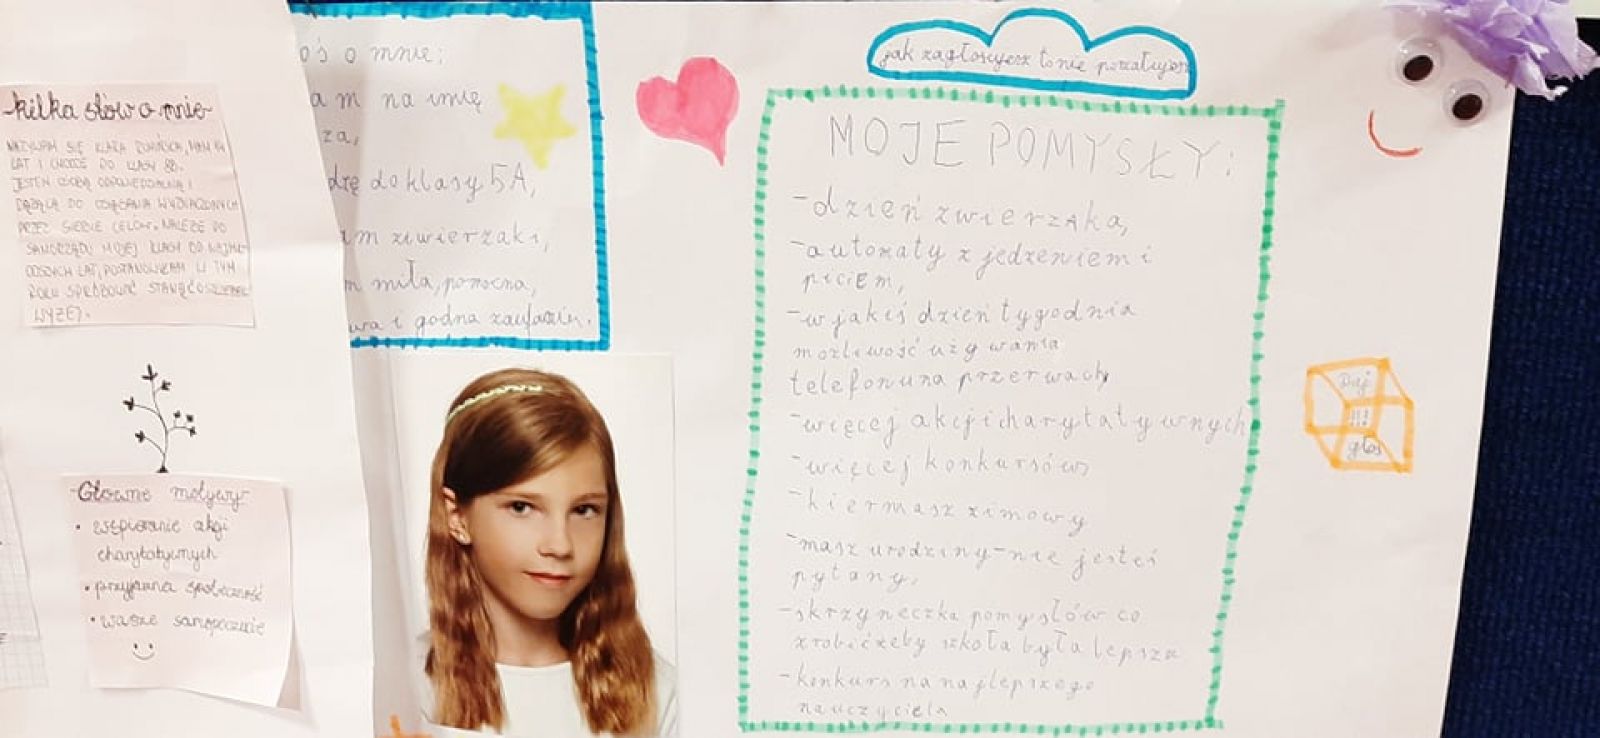 -kilka słów o mnie-
NAZYWAM SIĘ KLARA MAM 14
LAT I CHODZĘ DO KLASY 8B.
JESTEM OSOBĄ ODPOWIEDZIALNĄ I
DĄŻĄCĄ DO OSIĄGANIA WYZNACZONYCH
PRZEZ SIEBIE CELÓW. NALEŻĘ DO
SAMORZĄDU MOJEJ KLASY OD
LAT, POSTANOWIŁAM W TYM
ROKU SPRÓBOWAĆ STANĄĆ
WYŻEJ.
-Główne motywy-
• wspieranie akcji
charytatywnych
• przyjazna społeczność
• wasze samopoczucie
oś o mnie:
am na imię
za,
dzę do klasy 5A,
am zwierzaki,
m miła, pomocna,
wa i godna zaufania.
jak zagłosujesz to nie pożałujesz
MOJE POMYSŁY:
-dzień zwierzaka,
-automaty z jedzeniem i
piciem,
-w jakiś dzień tygodnia
możliwość używania
telefonu na przerwach
-więcej akcji charytatywnych
-więcej konkursów
-kiermasz zimowy
-masz urodziny-nie jesteś
pytany,
-skrzyneczka pomysłów co
zrobić żeby szkoła była lepsza
-konkurs na najlepszego
nauczyciela
Daj
głos